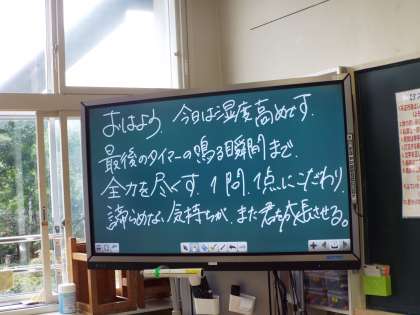 おはよう。今日は湿度高めです。
最後のタイマーの鳴る瞬間まで、
全力を尽くす。1問、1点にこだわり、
諦らめない気持ちが、また君を成長させる。